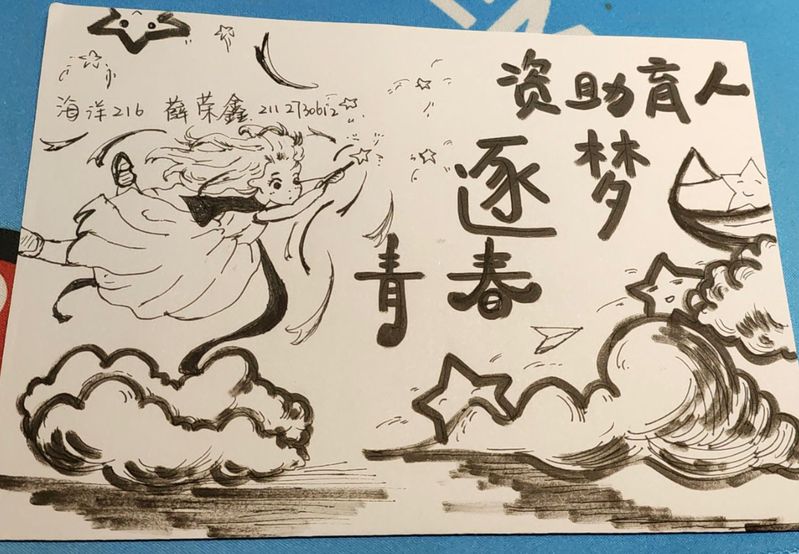 资助育人
逐梦
青春
海洋216 薛荣鑫 211273061